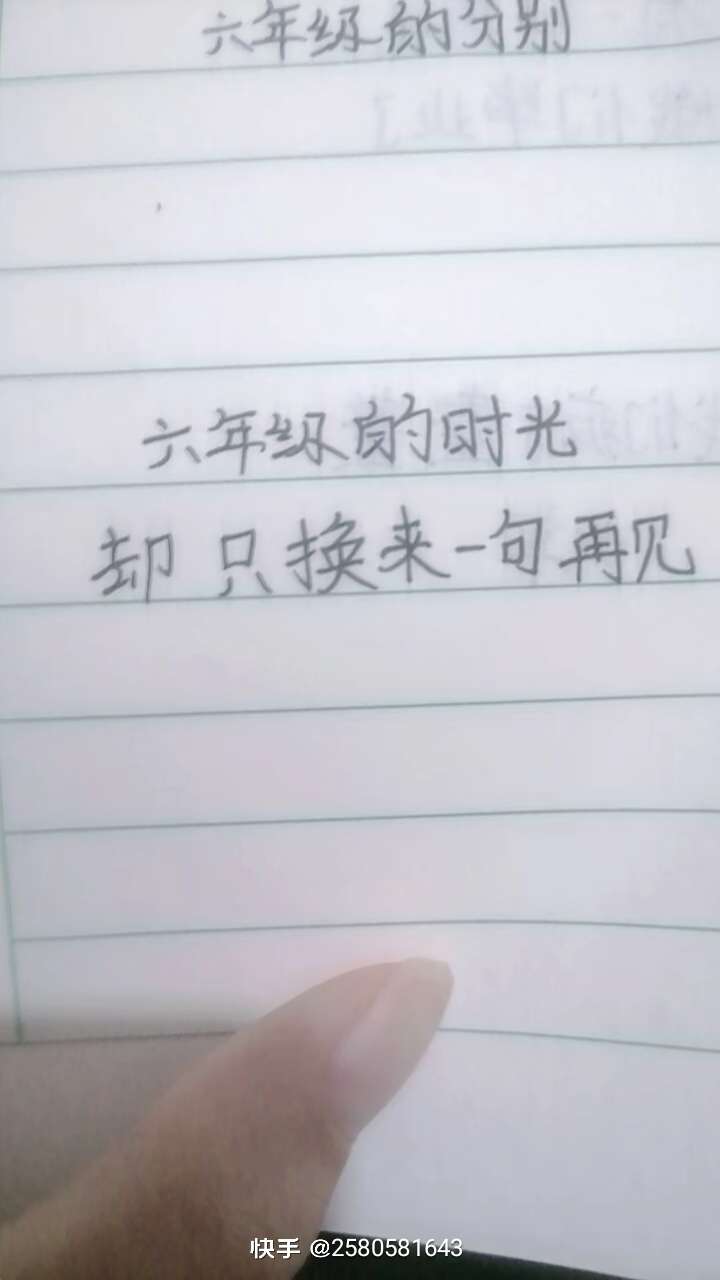 六年级的分别
六年级的时光
却只换来一句再见
快手 @2580581643